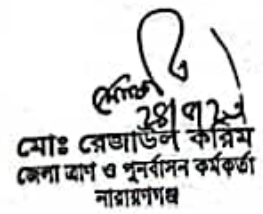 ২৪।৭।২৭
মোঃ রেজাউল করিম
জেলা ত্রাণ ও পুনর্বাসন কর্মকর্তা
নারায়ণগঞ্জ